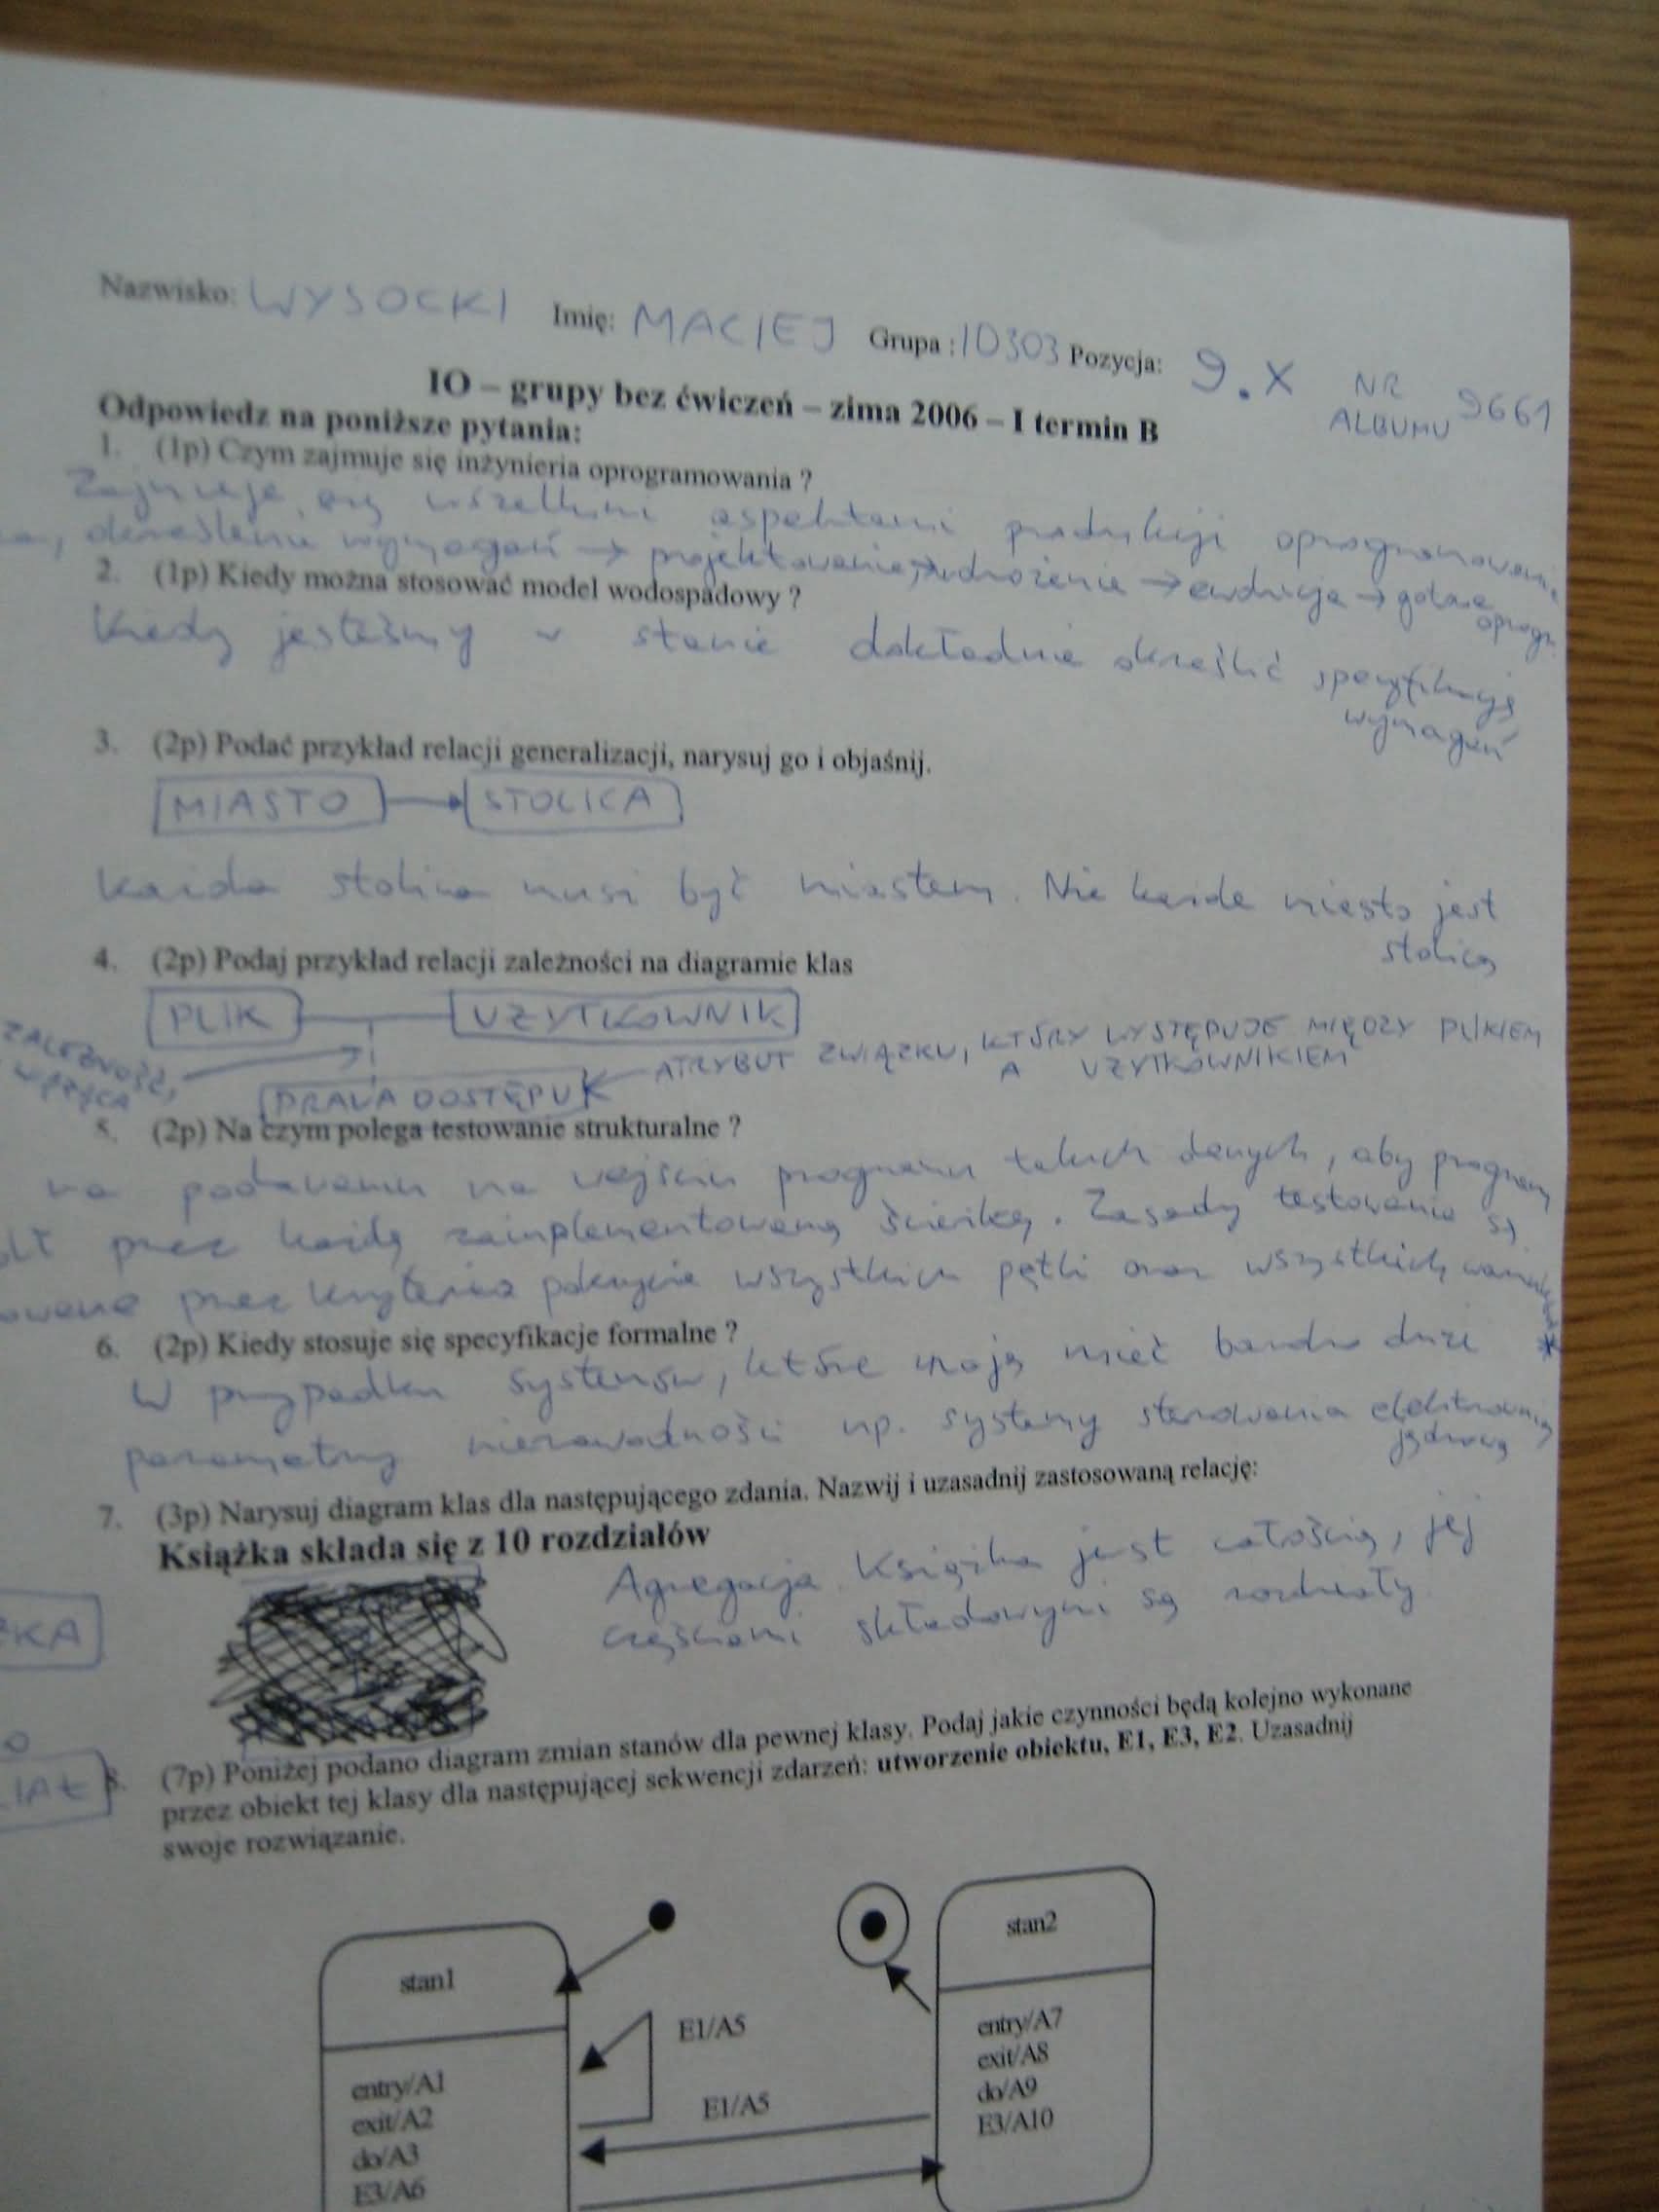 Nazwisko: WYSOCKI Imię: MACIEJ Grupa : ID303 Pozycja: 9.X NR ALBUMU 9661
IO – grupy bez ćwiczeń – zima 2006 – I termin B
Odpowiedz na poniższe pytania:
1. (1p) Czym zajmuje się inżynieria oprogramowania ?
Zajmuje się wszelkimi aspektami produkcji oprogramowani
określenie wymagań → projektowanie → wdrożenie → ewolucja → gotowe oprogr.
2. (1p) Kiedy można stosować model wodospadowy ?
Kiedy jesteśmy w stanie dokładnie określić specyfikację
wymagań
3. (2p) Podać przykład relacji generalizacji, narysuj go i objaśnij.
MIASTO STOLICA
Każda stolica musi być miastem. Nie każde miasto jest
stolicą
4. (2p) Podaj przykład relacji zależności na diagramie klas
PLIK UŻYTKOWNIK
ZALEŻNOŚĆ,
ATRYBUT ZWIĄZKU, KTÓRY WYSTĘPUJE MIĘDZY PLIKIEM
A UŻYTKOWNIKIEM
PRAWA DOSTĘPU
5. (2p) Na czym polega testowanie strukturalne ?
na podawaniu na wejściu programu takich danych, aby program
przez każdą zaimplementowaną ścieżkę. Zasady testowania są
przez kryteria pokrycie wszystkich pętli oraz wszystkich
6. (2p) Kiedy stosuje się specyfikacje formalne ?
W przypadku systemów, które mają mieć bardzo duże *
parametry niezawodności np. systemy sterowania elektrownią
jądrową
7. (3p) Narysuj diagram klas dla następującego zdania. Nazwij i uzasadnij zastosowaną relację:
Książka składa się z 10 rozdziałów
Agregacja. Książka jest całością, jej
częściami składowymi są rozdziały.
ŻKA
IAŁ
8. (7p) Poniżej podano diagram zmian stanów dla pewnej klasy. Podaj jakie czynności będą kolejno wykonane
przez obiekt tej klasy dla następującej sekwencji zdarzeń: utworzenie obiektu, E1, E3, E2. Uzasadnij
swoje rozwiązanie.
stan1
entry/A1
exit/A2
do/A3
E3/A6
E1/A5
E1/A5
stan2
entry/A7
exit/A8
do/A9
E3/A10